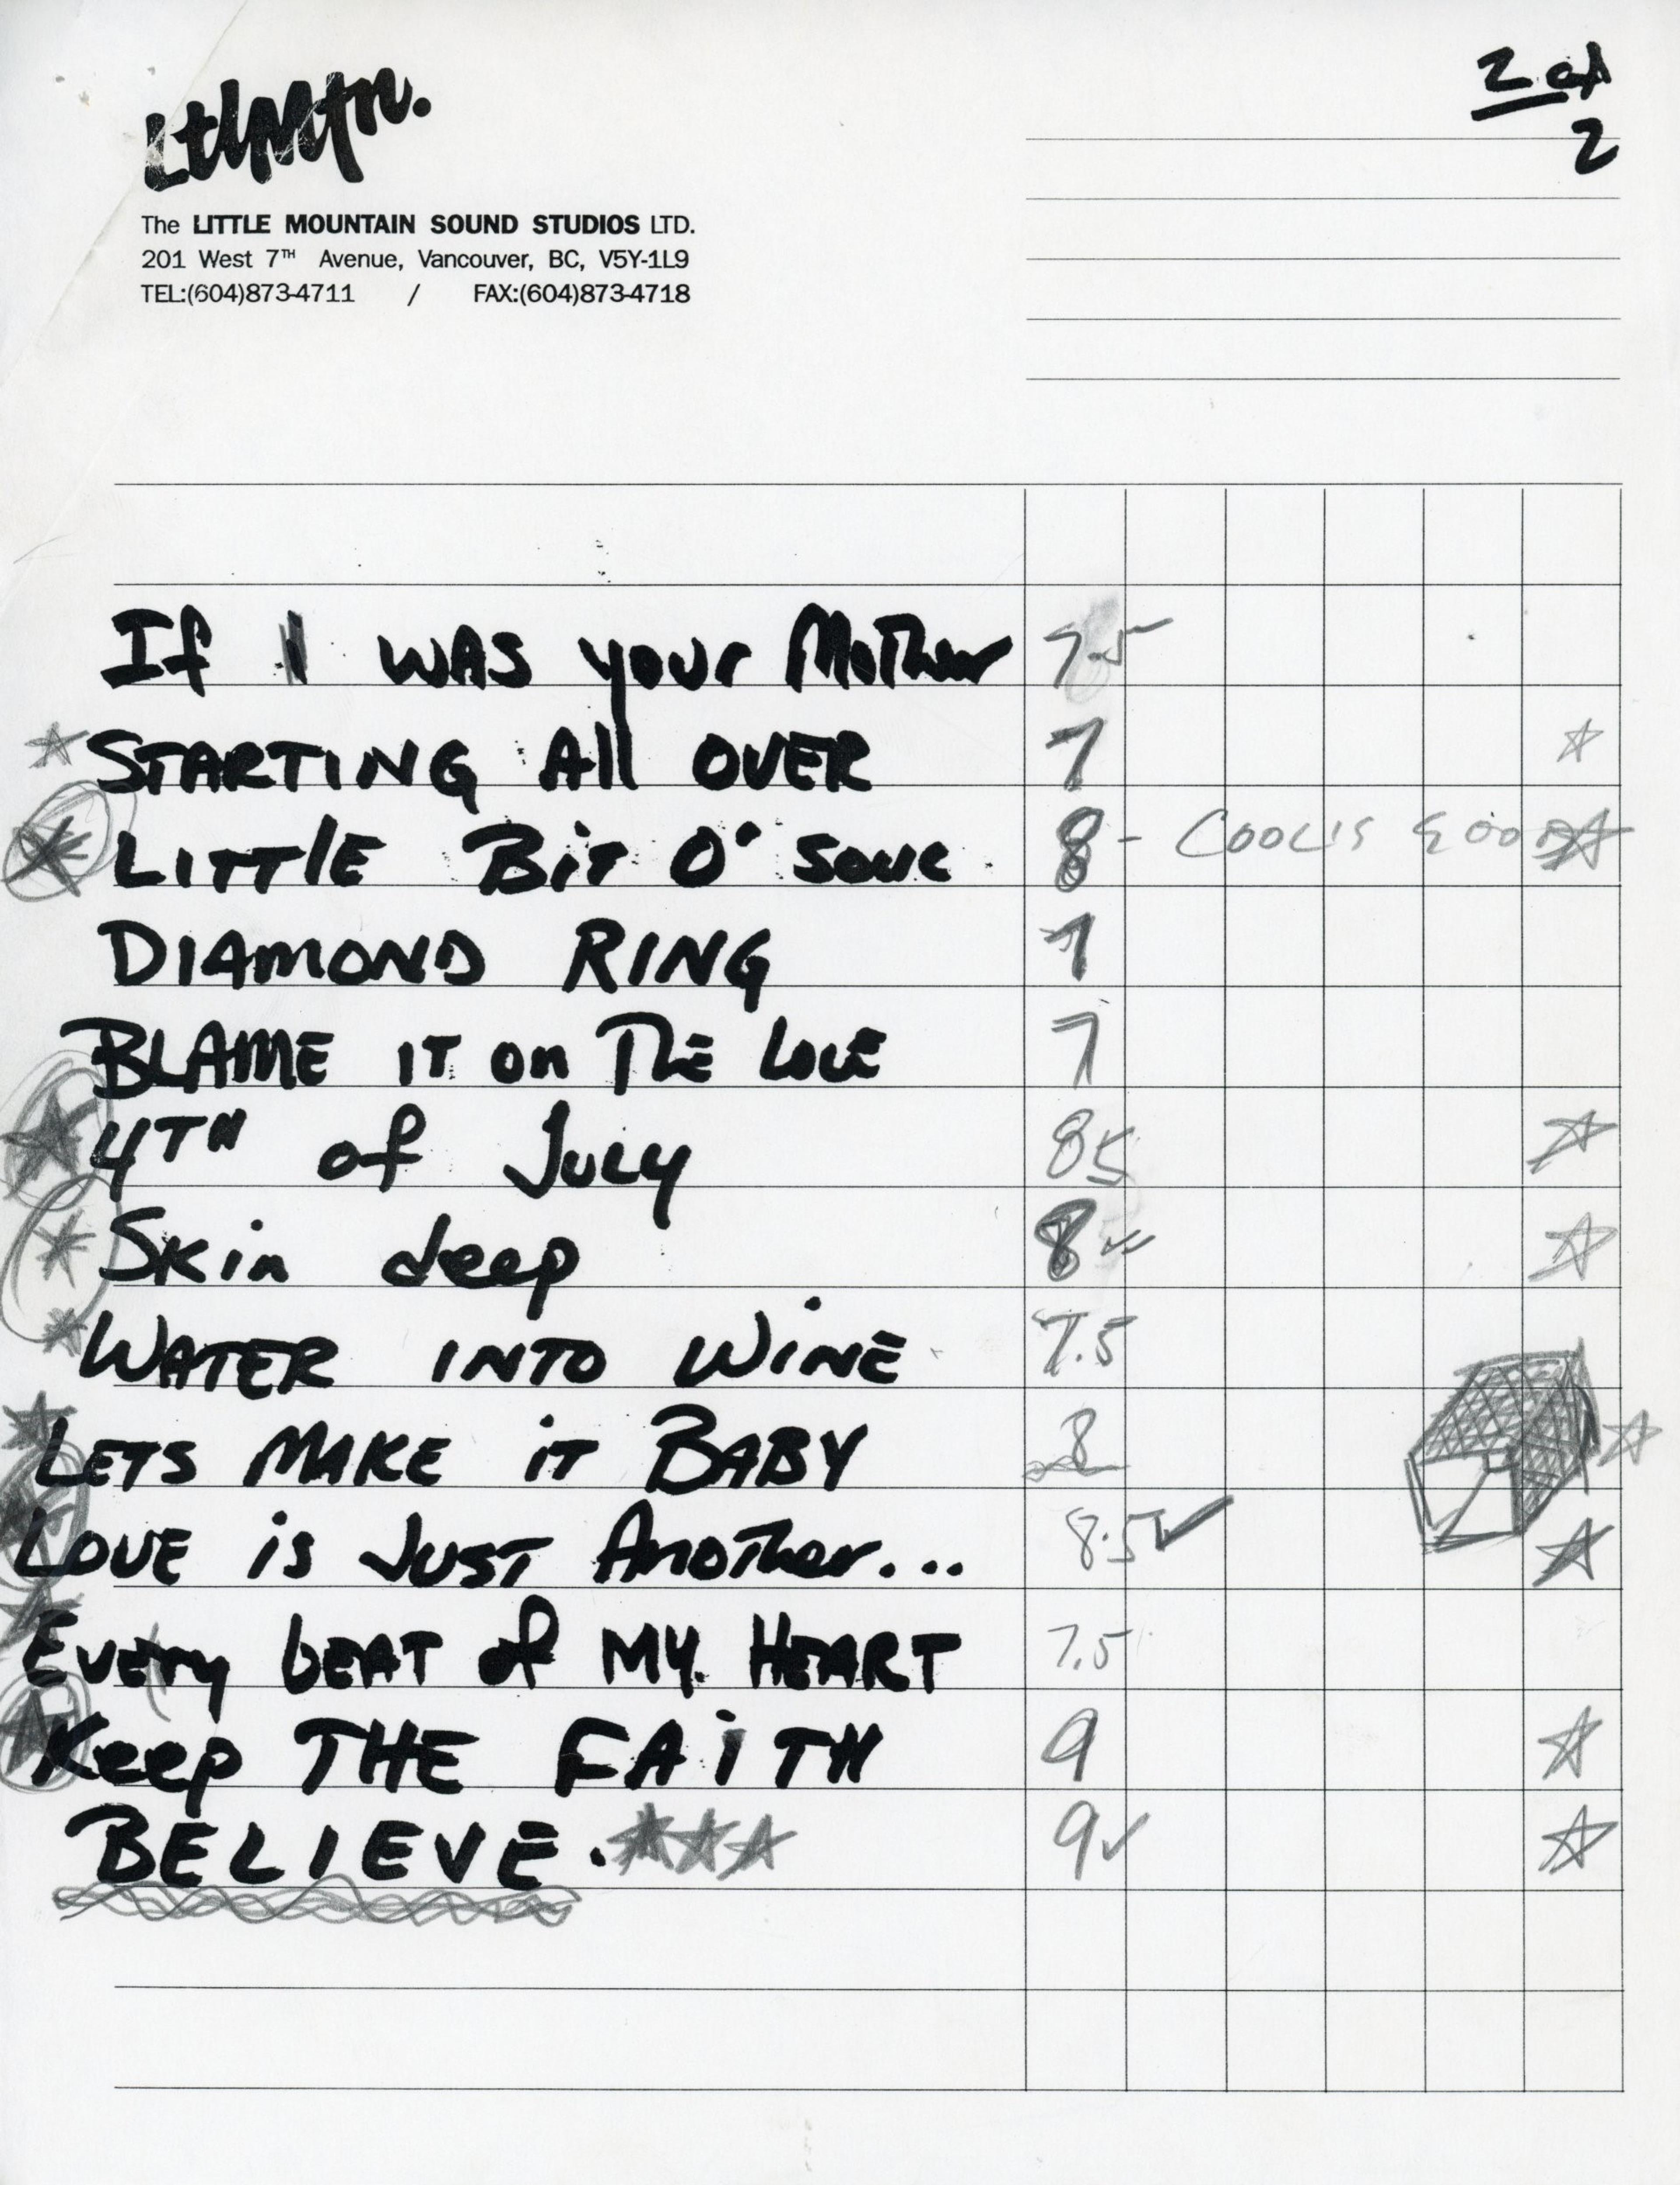 LtlMtn.
2 of 2
The LITTLE MOUNTAIN SOUND STUDIOS LTD.
201 West 7TH Avenue, Vancouver, BC, V5Y-1L9
TEL:(604)873-4711 / FAX:(604)873-4718
If I WAS your MoTher 7.5
STARTING All OVER 7
LITTlE BiT O' SOUL 8 - COOL IS GOOD
DIAMOND RING 7
BLAME IT on ThE LovE 7
4TH of July 85
Skin deep 8
WATER INTO WiNE 7.5
LETS MAKE iT BABY 8
LOVE is JUST AnoTher... 8.5
Every bEAT of MY HEART 7.5
Keep THE FAiTH 9
BELIEVE. 9